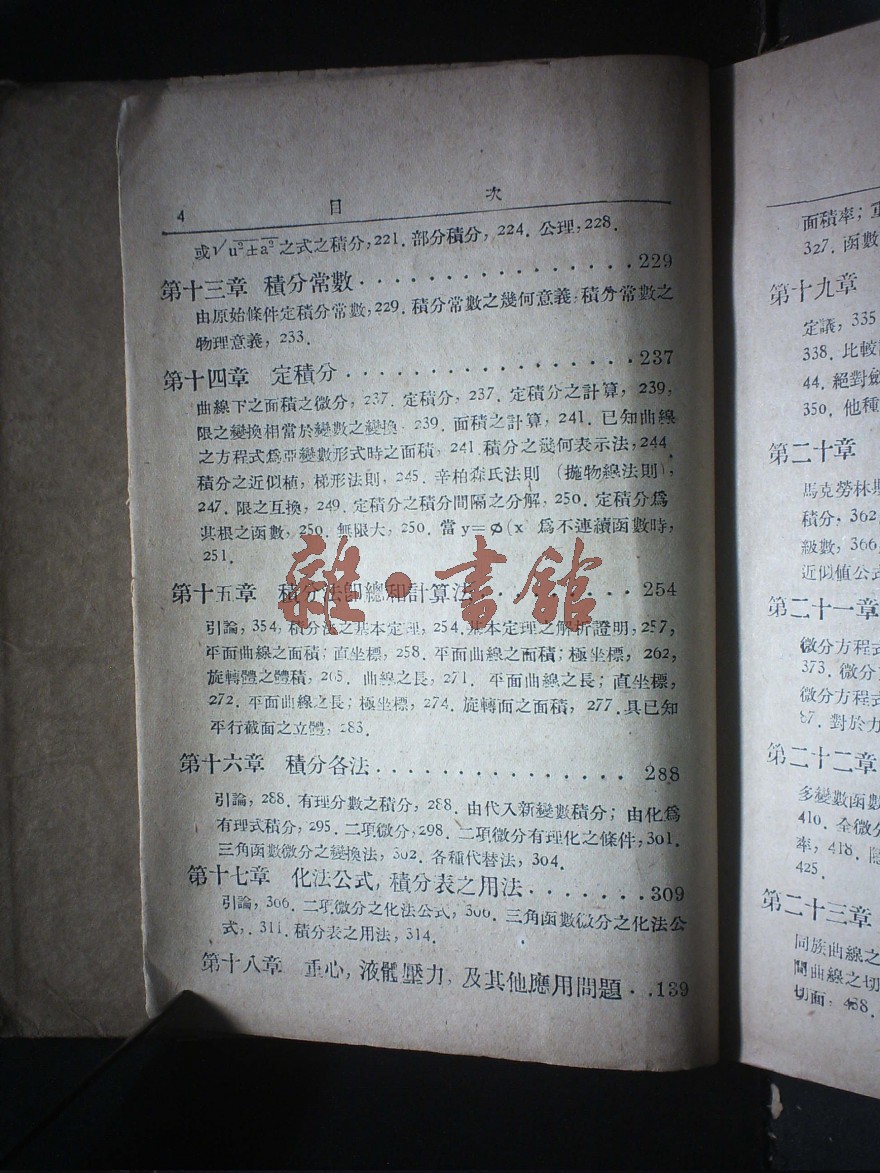 4 目 次
或√u²±a² 之式之積分,221. 部分積分, 224. 公理,228.
第十三章 積分常數 · · · · · · · · · · · · · · · 229
由原始條件定積分常數,229. 積分常數之幾何意義,積分常數之
物理意義, 233.
第十四章 定積分 · · · · · · · · · · · · · · · 237
曲線下之面積之微分, 237. 定積分, 237. 定積分之計算, 239,
限之變換相當於變數之變換 239. 面積之計算, 241. 已知曲線
之方程式爲亞變數形式時之面積, 241 積分之幾何表示法,244
積分之近似植, 梯形法則, 245. 辛柏森氏法則 (拋物線法則),
247. 限之互換, 249. 定積分之積分間隔之分解, 250. 定積分爲
其根之函數, 250. 無限大, 250. 當 y=φ(x 爲不連續函數時,
251.
第十五章 積分法即總和計算法 · · · · · · · · 254
引論, 354, 積分法之基本定理, 254.基本定理之解析證明, 257,
平面曲線之面積; 直坐標, 258. 平面曲線之面積; 極坐標, 262,
旋轉體之體積, 265. 曲線之長, 271. 平面曲線之長; 直坐標,
272. 平面曲線之長; 極坐標, 274. 旋轉面之面積, 277.具已知
平行截面之立體, 283.
雜·書館
第十六章 積分各法 · · · · · · · · · · · · · 288
引論, 288. 有理分數之積分, 288. 由代入新變數積分; 由化爲
有理式積分, 295. 二項微分, 298. 二項微分有理化之條件, 301.
三角函數微分之變換法, 302. 各種代替法, 304.
第十七章 化法公式, 積分表之用法 · · · · · · 309
引論, 306. 二項微分之化法公式, 306. 三角函數微分之化法公
式, . 311. 積分表之用法, 314.
第十八章 重心, 液體壓力, 及其他應用問題 · . .139
面積率;
327. 函數
第十九章
定議, 335
338. 比較
44. 絕對
350. 他種
第二十章
馬克勞林
積分, 362
級數, 366
近似值公式
第二十一章
微分方程式
373. 微分
微分方程式
87. 對於力
第二十二章
多變數函數
410. 全微分
率, 418.
425.
第二十三章
同族曲線之
間曲線之切
切面. 438.